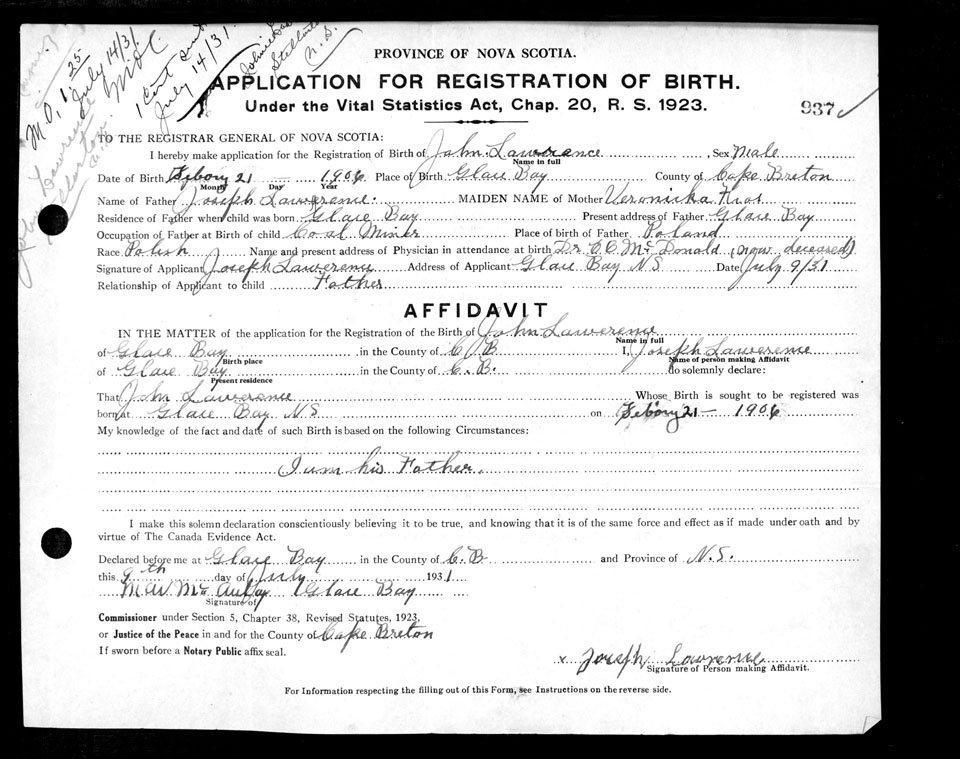 M.O. 1.25
July 14/31
1 Cert sent
July 14/31.
N.S.
PROVINCE OF NOVA SCOTIA.
APPLICATION FOR REGISTRATION OF BIRTH.
Under the Vital Statistics Act, Chap. 20, R. S. 1923.
937
TO THE REGISTRAR GENERAL OF NOVA SCOTIA:
I hereby make application for the Registration of Birth of John Lawerence, Sex Male
Name in full
Date of Birth Febory 21 1906 Place of Birth Glace Bay County of Cape Breton
Month Day Year
Name of Father Joseph Lawerence. MAIDEN NAME of Mother Veronika
Residence of Father when child was born Glace Bay Present address of Father Glace Bay
Occupation of Father at Birth of child Coal Miner Place of birth of Father Poland
Race Polish Name and present address of Physician in attendance at birth Dr McDonald (now deceased)
Signature of Applicant Joseph Lawerence Address of Applicant Glace Bay NS Date July 9/31
Relationship of Applicant to child Father
AFFIDAVIT
IN THE MATTER of the application for the Registration of the Birth of John Lawerence
Name in full
of Glace Bay in the County of C B I, Joseph Lawerence
Birth place Name of person making Affidavit
of Glace Bay in the County of C. B. do solemnly declare:
Present residence
That John Lawerence Whose Birth is sought to be registered was
born at Glace Bay NS on Febory 21 – 1906
My knowledge of the fact and date of such Birth is based on the following Circumstances:
I am his Father.
I make this solemn declaration conscientiously believing it to be true, and knowing that it is of the same force and effect as if made under oath and by
virtue of The Canada Evidence Act.
Declared before me at Glace Bay in the County of C B and Province of N.S.
this 9th day of July 1931
Glace Bay
Signature of
Commissioner under Section 5, Chapter 38, Revised Statutes, 1923,
or Justice of the Peace in and for the County of Cape Breton
If sworn before a Notary Public affix seal.
x Joseph Lawrence
Signature of Person making Affidavit.
For Information respecting the filling out of this Form, see Instructions on the reverse side.